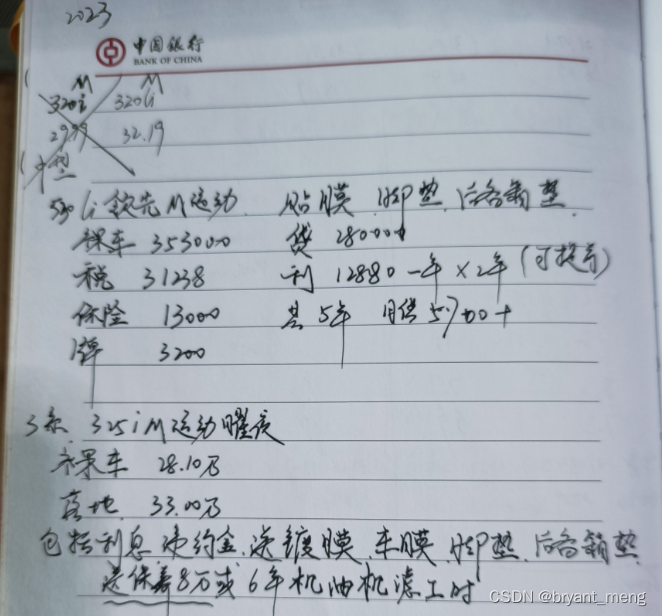 2023
中国银行
BANK OF CHINA
M M
320i 320li
29.99 32.19
中型
530li 领先M运动 贴膜 脚垫 后备箱垫
裸车 353000 贷 280000
税 31238 利 12880 一年 ×2年 (可提前)
保险 13000 共 5年 月供 5700+
牌 3200
3系 325i M运动曜夜
裸车 28.10万
落地 33.00万
包括利息 违约金 送镀膜 车膜 脚垫 后备箱垫
送保养8万或6年机油机滤工时
CSDN @bryant_meng